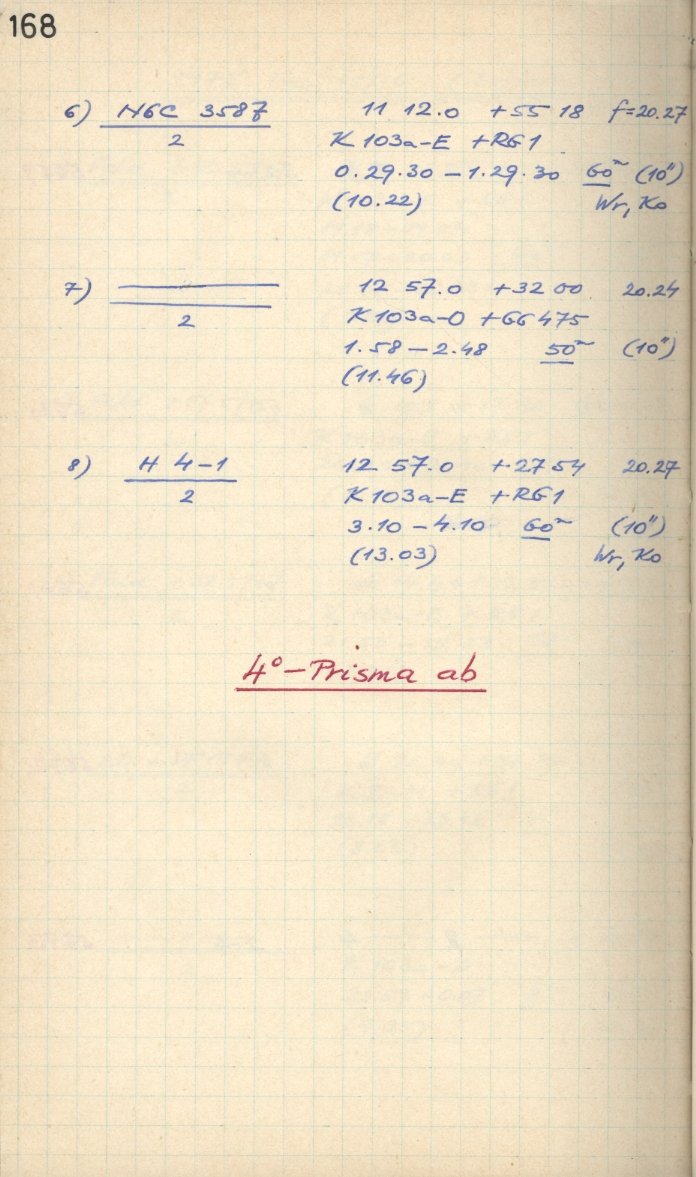 168
6) NGC 3587 11 12.0 +55 18 f=20.27
2 K 103a-E +RG1
0.29.30 – 1.29.30 60ᵐ (10")
(10.22) Wr, Ko
7) 12 57.0 +32 00 20.24
2 K 103a-O +GG 475
1.58 – 2.48 50ᵐ (10")
(11.46)
8) H 4-1 12 57.0 +27 54 20.27
2 K 103a-E +RG1
3.10 – 4.10 60ᵐ (10")
(13.03) Wr, Ko
4°-Prisma ab